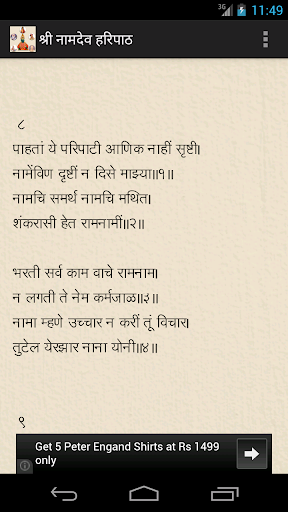 3G 11:49
श्री नामदेव हरिपाठ
८
पाहतां ये परिपाटी आणिक नाहीं सृष्टी।
नामेंविण दृष्टीं न दिसे माझ्या॥१॥
नामचि समर्थ नामचि मथित।
शंकरासी हेत रामनामीं॥२॥
भरती सर्व काम वाचे रामनाम।
न लगती ते नेम कर्मजाळ॥३॥
नामा म्हणे उच्चार न करीं तूं विचार।
तुटेल येरझार नाना योनी॥४॥
९
Get 5 Peter Engand Shirts at Rs 1499
only